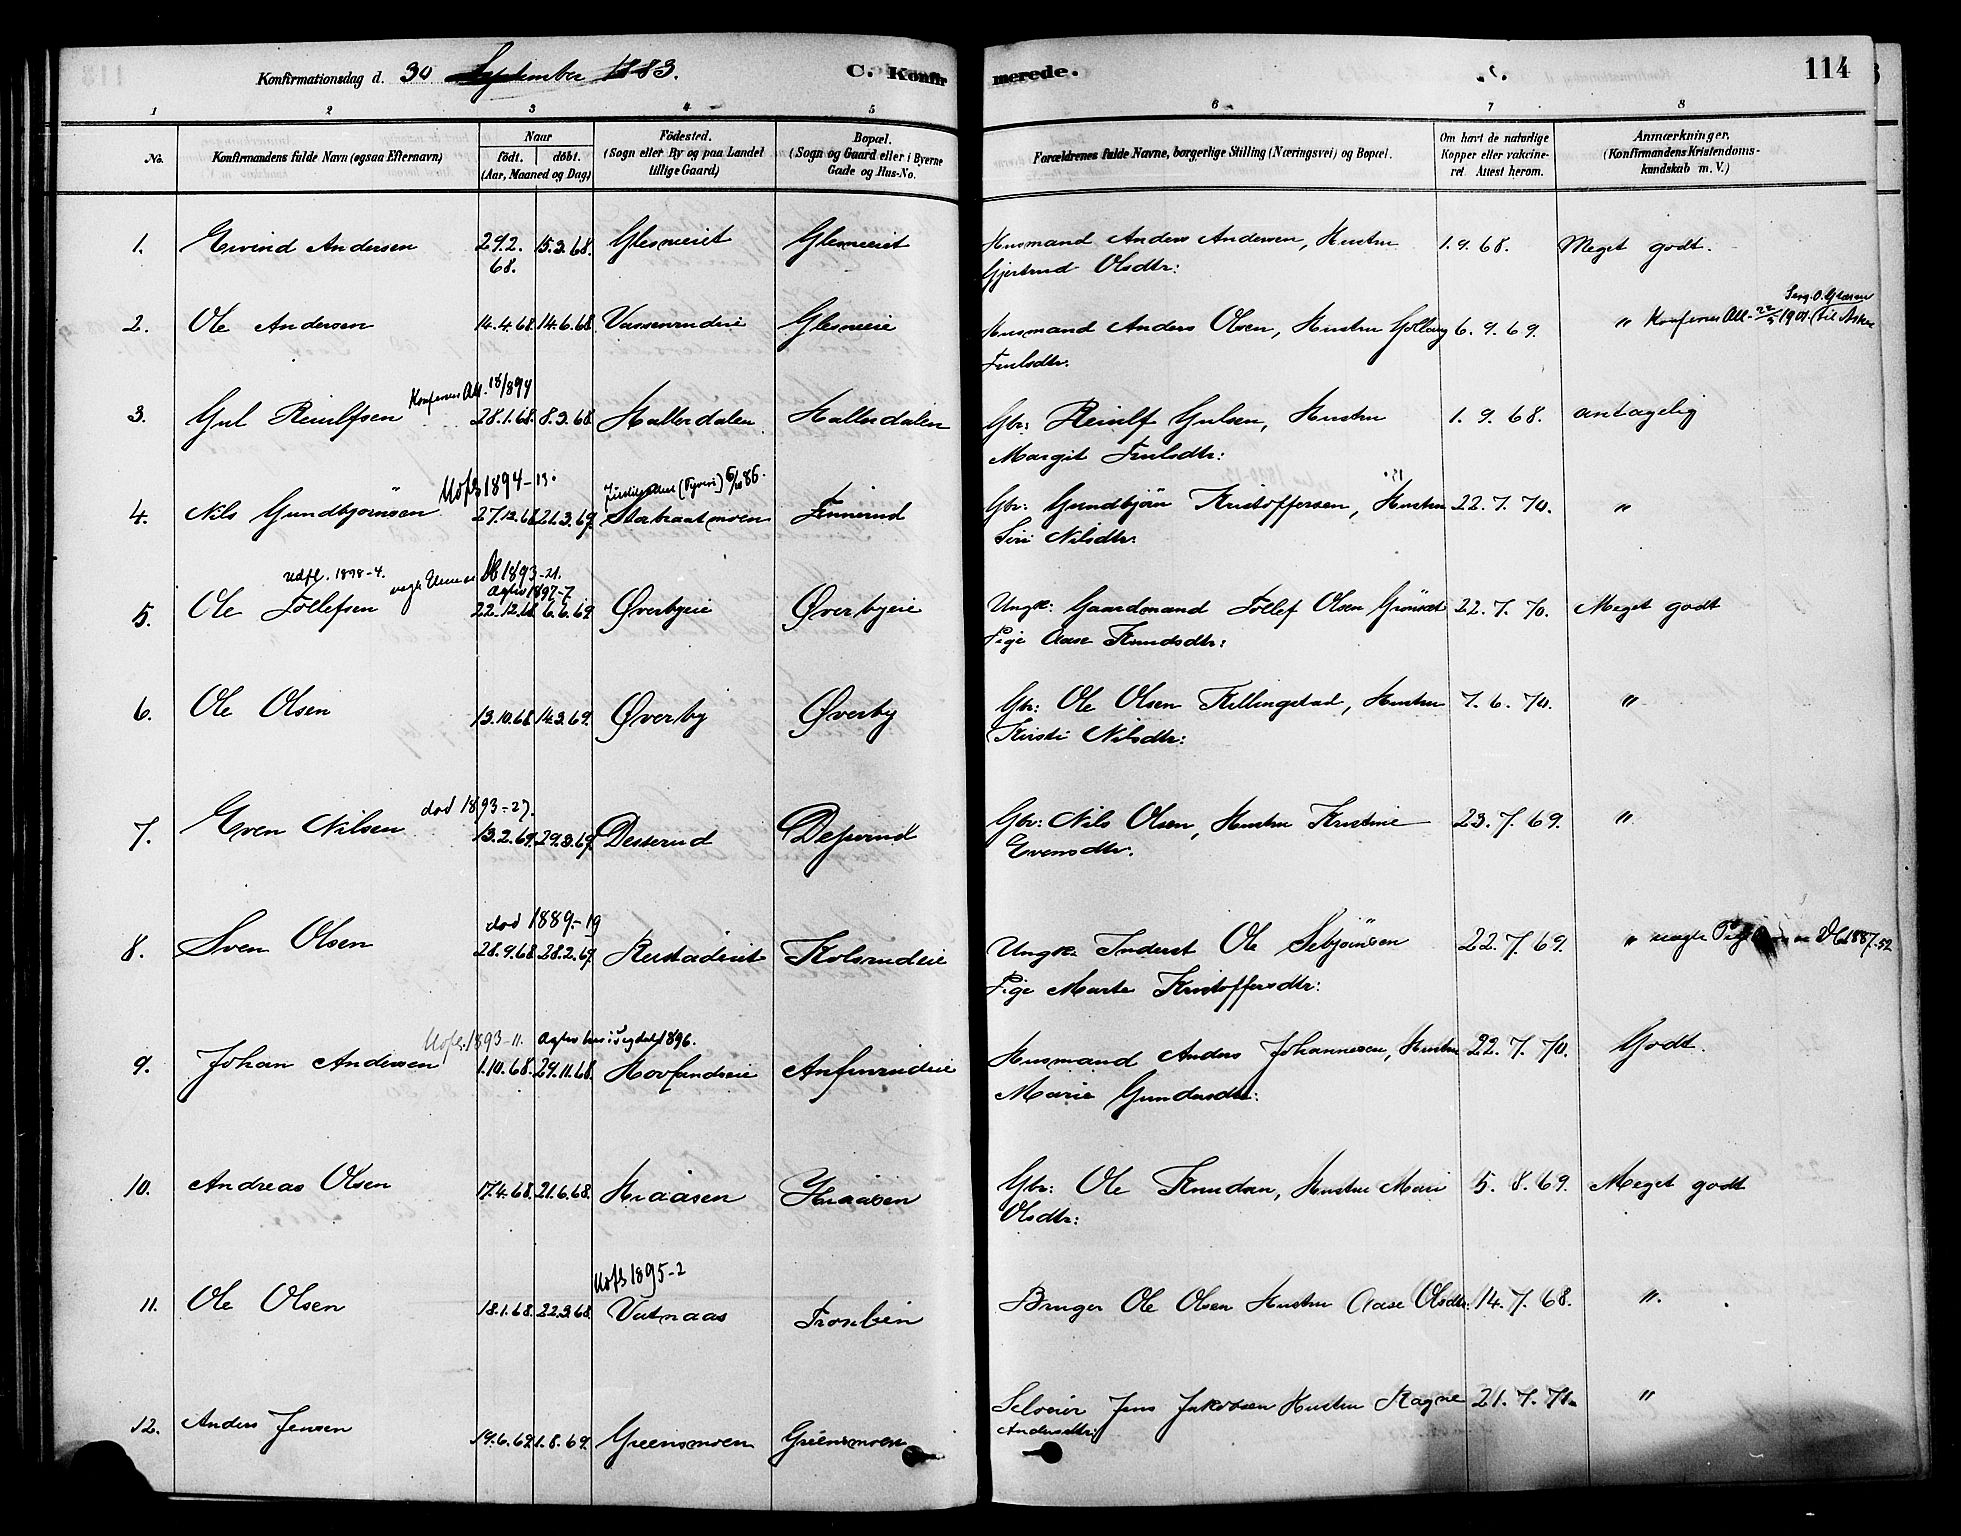 Konfirmationsdag d. 30 September 1883. C. Konfirmerede. 114
1 2 3 4 5 6 7 8
No. Konfirmandens fulde Navn (ogsaa Efternavn) Naar födt. döbt. (Aar, Maaned og Dag) Födested. (Sogn eller By og paa Landet tillige Gaard) Bopæl. (Sogn og Gaard eller i Byerne Gade og Hus-No. Forældrenes fulde Navne, borgerlige Stilling (Næringsvei) og Bopæl. Om havt de naturlige Kopper eller vakcineret. Attest herom. Anmærkninger. (Konfirmandens Kristendomskundskab m. V.)
1. Eivind Andersen 29.2.68. 15.3.68. Glesneeiet Glesneeiet Husmand Anders Andersen, Hustru 1.9.68. Meget godt.
Gjertrud Olsdtr:
2. Ole Andersen 14.4.68. 14.6.68. Vassenrudeie Glesneeie Husmand Anders Olsen, Hustru Gollaug 6.9.69. "
Trulsdtr.
18/894
3. Gul Reiulfsen 28.1.68. 8.3.68. Hallerdalen Hallerdalen Gbr: Reiulf Gulsen, Hustru 1.9.68. antagelig
Margit Trulsdtr:
1894-13.
4. Nils Gundbjörnsen 27.12.68. 21.3.69. Storbraatmoen Finnerud Gbr: Gundbjörn Kristoffersen, Hustru 22.7.70. "
Siri Nilsdtr.
udfl. 1898-4. 1893-21.
1897-7
5. Ole Tollefsen 22.12.68 6.6.69 Øverbyeie Øverbyeie Ungk: Gaardmand Tollef Olsen Grönset 22.7.70. Meget godt
Pige Aase Knudsdtr:
6. Ole Olsen 13.10.68 14.3.69. Øverby Øverby Gbr: Ole Olsen Killingstad, Hustru 7.6.70. "
Kirsti Nilsdtr:
död 1893-27.
7. Even Nilsen 13.2.69. 29.3.69. Desserud Desserud Gbr: Nils Olsen, Hustru Kristine 23.7.69. "
Evensdtr.
död 1889-19
8. Sven Olsen 28.9.68 28.2.69 Rustadeiet Kolsrudeie Ungk. Inderst Ole Sebjörnsen 22.7.69. " 1887-52
Pige Marte Kristoffersdtr:
1893-11. 1896.
9. Johan Andersen 1.10.68. 29.11.68. Hovlandseie Anfinrudeie Husmand Anders Johannesen, Hustru 22.7.70. Godt.
Marie Gundersdtr:
10. Andreas Olsen 17.4.68. 21.6.68. Knaasen Knaasen Gbr: Ole Knudsen, Hustru Mari 5.8.69. Meget godt
Olsdtr:
1895-2
11. Ole Olsen 18.1.68. 22.3.68. Vatnaas Bruger Ole Olsen Hustru Aase Olsdtr: 14.7.68. "
12. Anders Jensen 19.6.69. 1.8.69. Greensmoen Greensmoen Selveier Jens Jakobsen Hustru Ragne 21.7.71. "
Andersdtr: